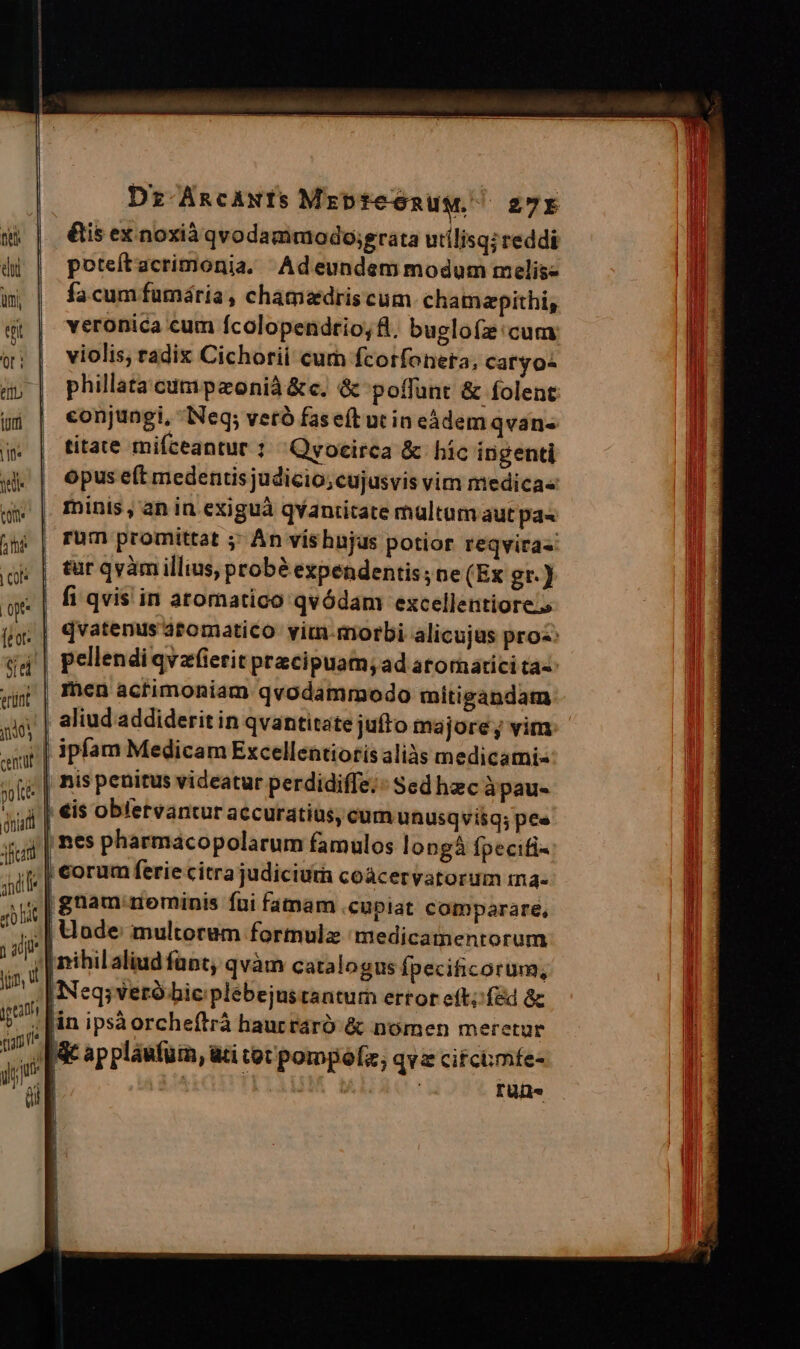 DE ARCANIS MEDICORUM. 271
ctis ex noxiâ qvodammodo, grata utilisq; reddi
potest acrimonia. Ad eundem modum melis-
sa cum fumária, chamædris cum chamæpithi,
veronica cum scolopendrio, fl. buglosæ cum
violis, radix Cichorii cum scorsonera, caryo-
phillata cum pæoniâ &c. & possunt & solent
conjungi. Neq; verò fas est ut in eâdem qvan-
titate misceantur: Qvocirca & hîc ingenti
opus est medentis judicio, cujusvis vim medica-
minis, an in exiguâ qvantitate multum aut pa-
rum promittat; An vis hujus potior reqvira-
tur qvàm illius, probè expendentis; ne (Ex gr.)
si qvis in aromatico qvódam excellentiore,
qvatenus aromatico vim morbi alicujus pro-
pellendi qvæsierit præcipuam, ad aromatici ta-
men acrimoniam qvodammodo mitigandam
aliud addiderit in qvantitate justo majore, vim
ipsam Medicam Excellentioris aliàs medicami-
nis penitus videatur perdidisse. Sed hæc à pau-
cis observantur accuratius, cum unusqvisq; pe-
nes pharmacopolarum famulos longâ specifi-
corum serie citra judicium coâcervatorum ma-
gnam nominis sui famam cupiat comparare,
Unde multorum formulæ medicamentorum
nihil aliud sunt, qvàm catalogus specificorum,
Neq; verò hic plebejus tantum error est, sed &
in ipsâ orchestrâ haut rarò & nomen meretur
& applausum, uti tot pomposæ, qvæ circumfe-
run-